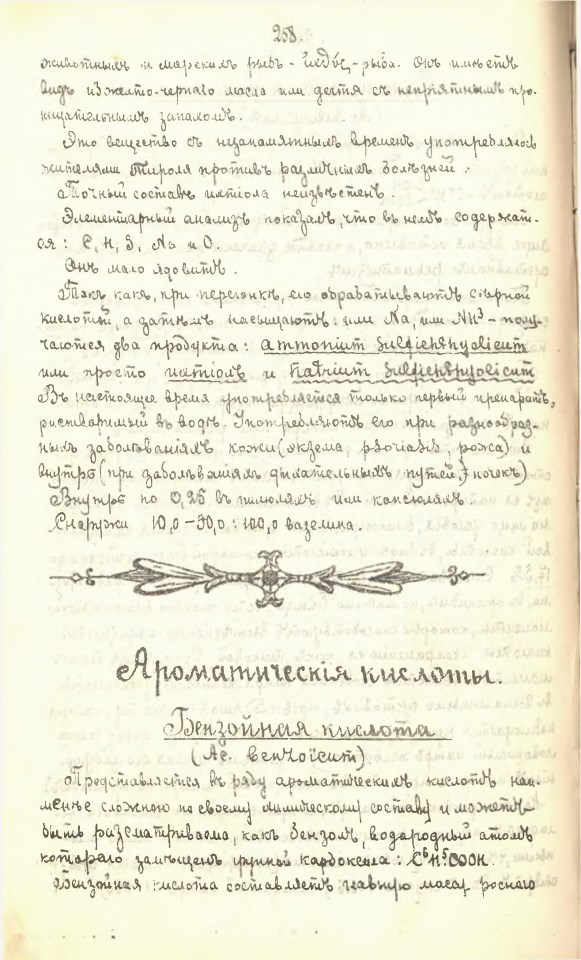 258.
животныхъ и морскихъ рыбъ - ἰχθύς - рыба. Онъ имѣетъ
видъ изжелта-чернаго масла или дегтя съ непріятнымъ про-
ницательнымъ запахомъ.
Это вещество съ незапамятныхъ временъ употреблялось
жителями Тироля противъ различныхъ болѣзней.
Точный составъ ихтіола неизвѣстенъ.
Элементарный анализъ показалъ, что въ немъ содержат-
ся: C, H, S, Na и O.
Онъ мало ядовитъ.
Такъ какъ, при перегонкѣ, его обрабатываютъ сѣрной
кислотой, а затѣмъ насыщаютъ: или Na, или NH³ - полу-
чаются два продукта: Ammonium Sulfichthyolicum
или просто ихтіолъ и Natrium Sulfichthyolicum
Въ настоящее время употребляется только первый препаратъ,
растворимый въ водѣ. Употребляютъ его при разнообраз-
ныхъ заболѣваніяхъ кожи (экзема, psoriasis, рожа) и
внутрь (при заболѣваніяхъ дыхательныхъ путей, почекъ)
Внутрь по 0,25 въ пилюляхъ или капсюляхъ.
Снаружи 10,0 - 50,0 : 100,0 вазелина.
Ароматическія кислоты.
Бензойная кислота
(Ac. benzoïcum)
Представляется въ ряду ароматическихъ кислотъ наи-
менѣе сложною по своему химическому составу и можетъ
быть разсматриваема, какъ бензолъ, водородный атомъ
котораго замѣщенъ группой карбоксила: C⁶H⁵COOH.
Бензойная кислота составляетъ главную массу роснаго